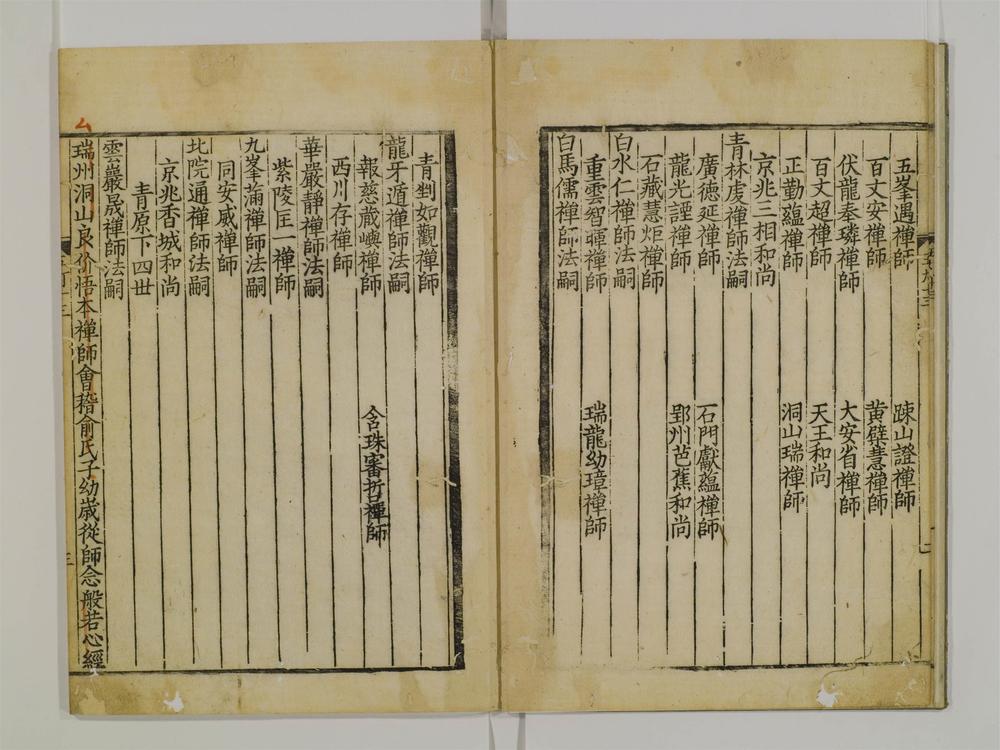 五峯遇禪師 踈山證禪師
百丈安禪師 黃檗慧禪師
伏龍奉璘禪師 大安省禪師
百丈超禪師 天王和尚
正勤蘊禪師 洞山瑞禪師
京兆三相和尚
青林虔禪師法嗣
廣德延禪師 石門獻蘊禪師
龍光諲禪師 郢州芭蕉和尚
石藏慧炬禪師
白水仁禪師法嗣
重雲智暉禪師 瑞龍幼璋禪師
白馬儒禪師法嗣
青剉如觀禪師
龍牙遁禪師法嗣
報慈藏嶼禪師 含珠審哲禪師
西川存禪師
華嚴靜禪師法嗣
紫陵匡一禪師
九峯滿禪師法嗣
同安威禪師
北院通禪師法嗣
京兆香城和尚
青原下四世
雲巖晟禪師法嗣
瑞州洞山良价悟本禪師會稽俞氏子幼歲從師念般若心經